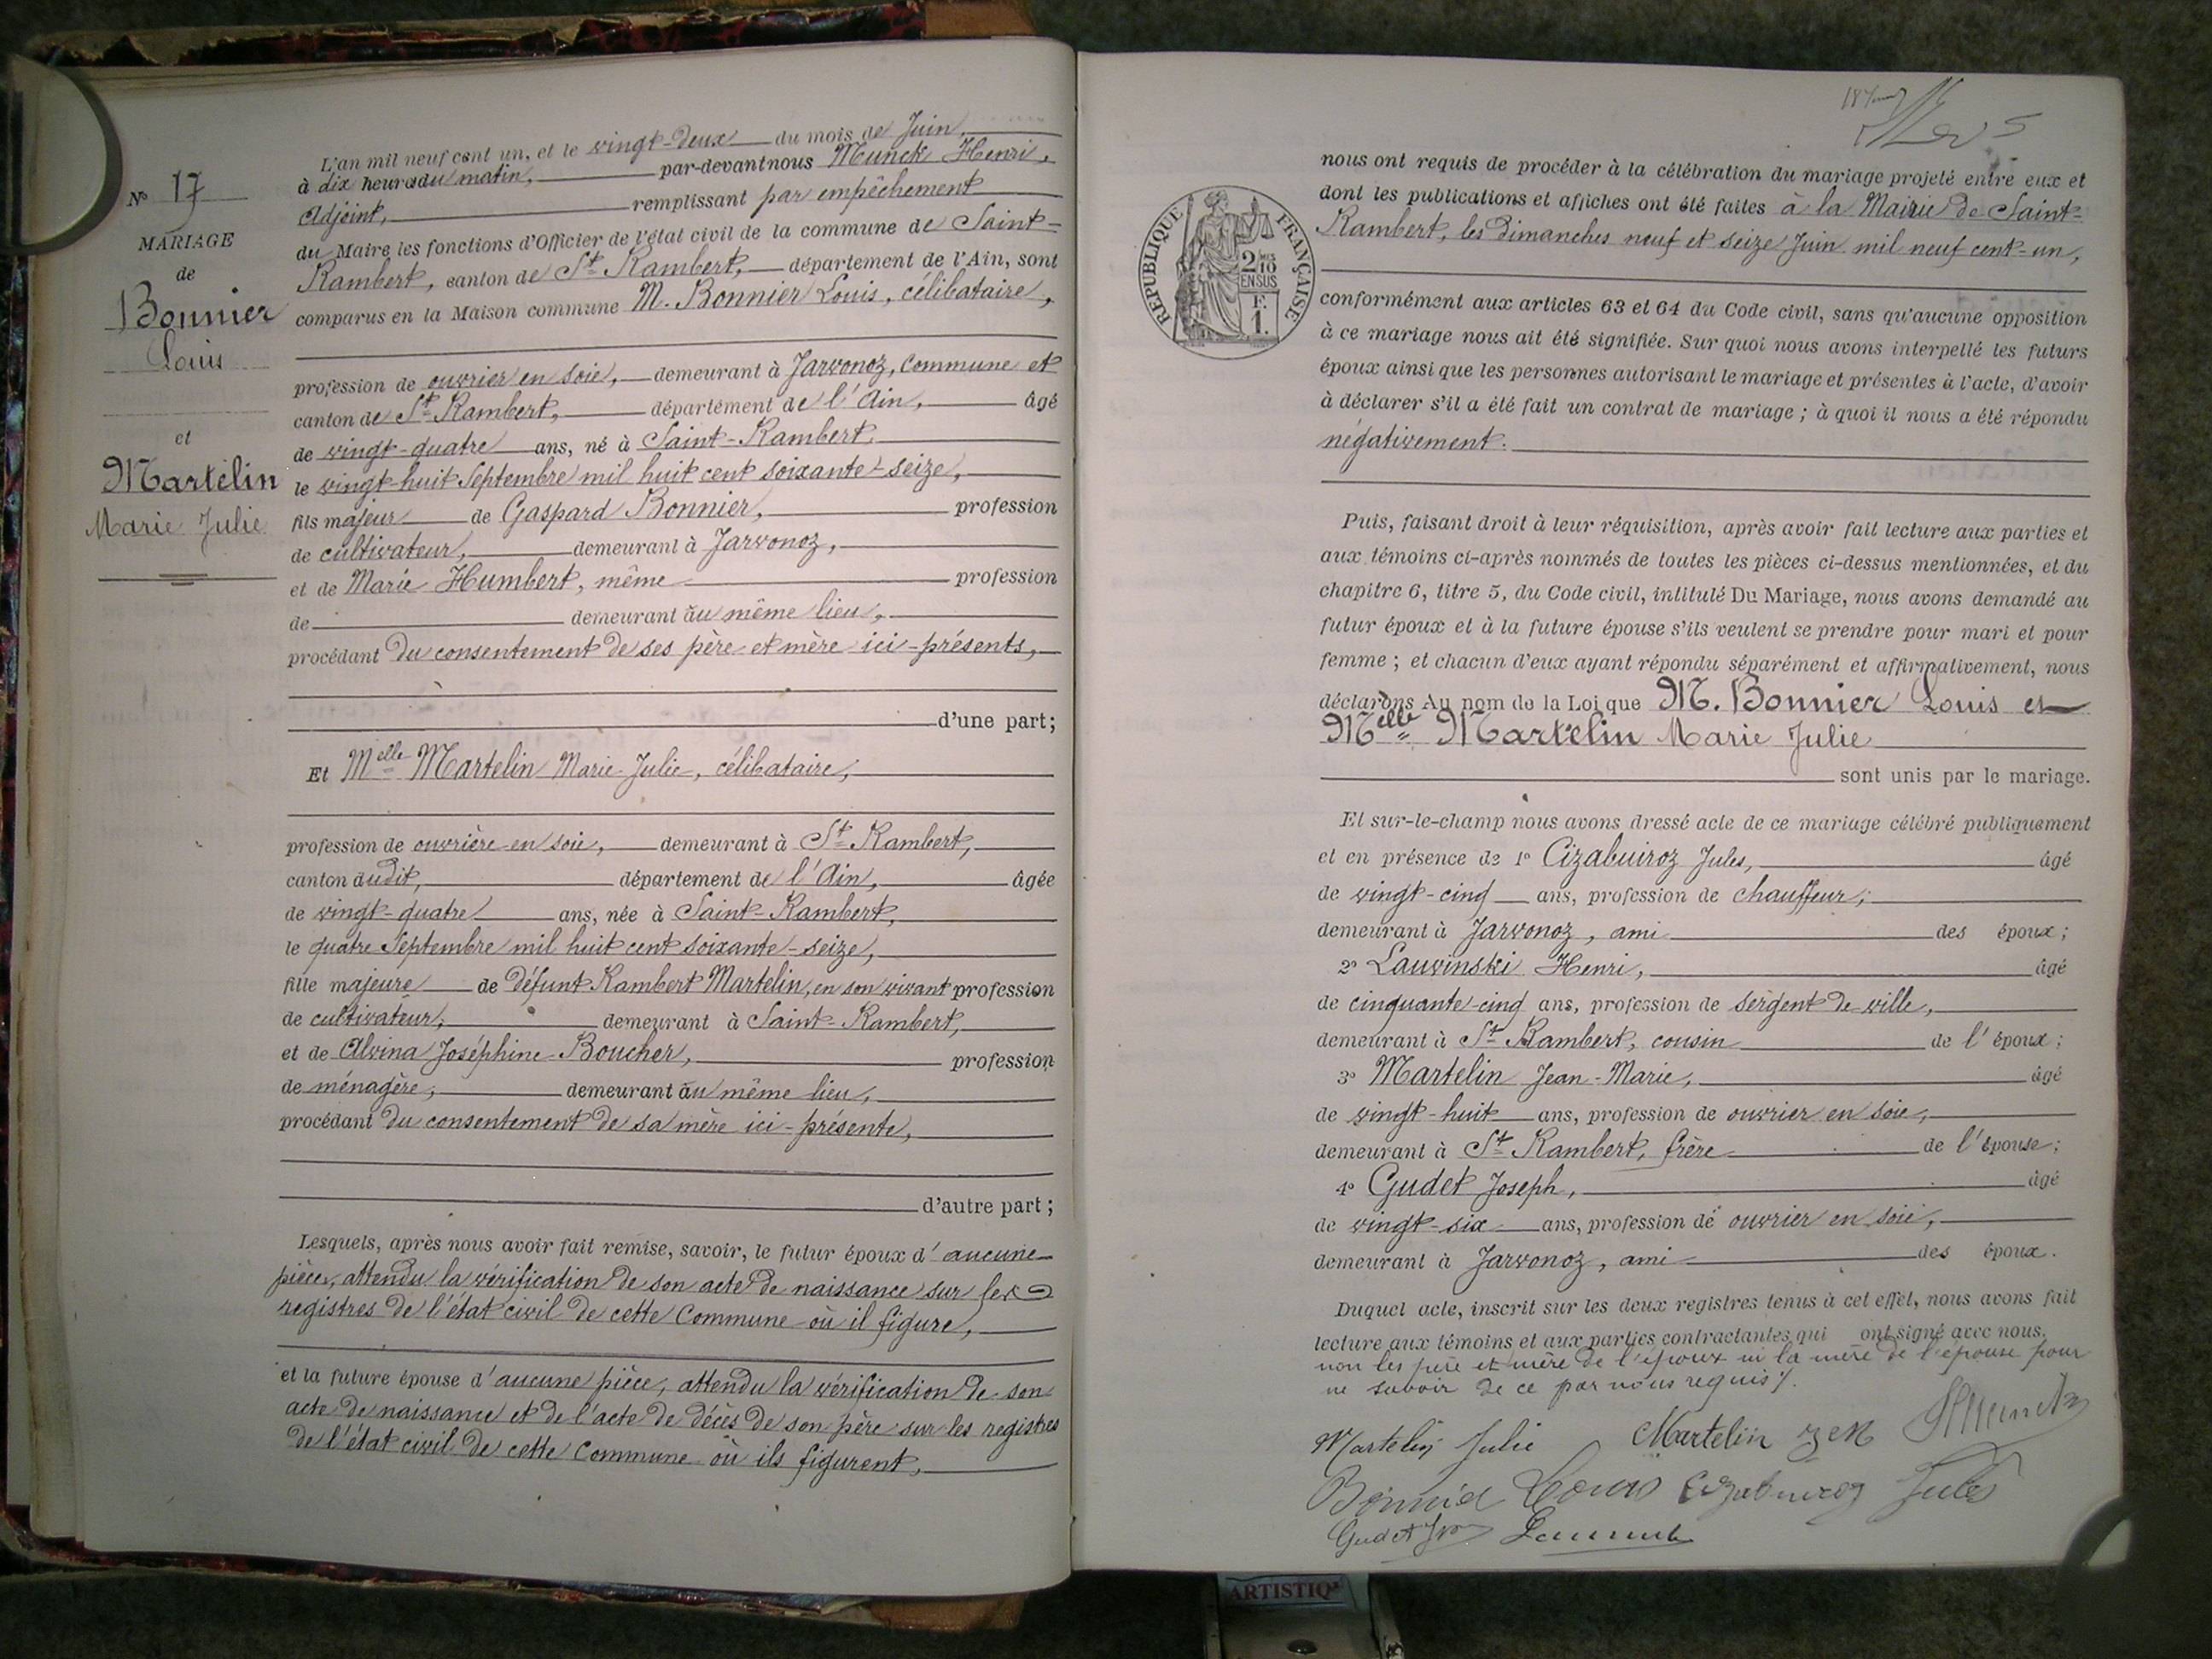 N° 17
MARIAGE
de
Bonnier
Louis
et
Martelin
Marie Julie
L'an mil neuf cent un, et le vingt-deux du mois de Juin,
à dix heures du matin, par-devant nous Munck Henri,
Adjoint, remplissant par empêchement
du Maire les fonctions d'Officier de l'état civil de la commune de Saint-
Rambert, canton de St Rambert, département de l'Ain, sont
comparus en la Maison commune M. Bonnier Louis, célibataire,
profession de ouvrier en soie, demeurant à Jarvonoz, commune et
canton de St Rambert, département de l'Ain, âgé
de vingt-quatre ans, né à Saint-Rambert,
le vingt-huit Septembre mil huit cent soixante-seize,
fils majeur de Gaspard Bonnier, profession
de cultivateur, demeurant à Jarvonoz,
et de Marie Humbert, même profession
de demeurant au même lieu,
procédant du consentement de ses père et mère ici-présents,
d'une part;
Et Melle Martelin Marie Julie, célibataire,
profession de ouvrière en soie, demeurant à St Rambert,
canton dudit, département de l'Ain, âgée
de vingt-quatre ans, née à Saint-Rambert,
le quatre Septembre mil huit cent soixante-seize,
fille majeure de défunt Rambert Martelin, en son vivant profession
de cultivateur, demeurant à Saint-Rambert,
et de Alvina Joséphine Boucher, profession
de ménagère, demeurant au même lieu,
procédant du consentement de sa mère ici-présente,
d'autre part;
Lesquels, après nous avoir fait remise, savoir, le futur époux d'aucune
pièce, attendu la vérification de son acte de naissance sur les
registres de l'état civil de cette Commune où il figure,
et la future épouse d'aucune pièce, attendu la vérification de son
acte de naissance et de l'acte de décès de son père sur les registres
de l'état civil de cette Commune où ils figurent,
RÉPUBLIQUE FRANÇAISE
2/10
EN SUS
F.
1.
nous ont requis de procéder à la célébration du mariage projeté entre eux et
dont les publications et affiches ont été faites à la Mairie de Saint-
Rambert, les Dimanches neuf et seize Juin mil neuf cent-un,
conformément aux articles 63 et 64 du Code civil, sans qu'aucune opposition
à ce mariage nous ait été signifiée. Sur quoi nous avons interpellé les futurs
époux ainsi que les personnes autorisant le mariage et présentes à l'acte, d'avoir
à déclarer s'il a été fait un contrat de mariage; à quoi il nous a été répondu
négativement.
Puis, faisant droit à leur réquisition, après avoir fait lecture aux parties et
aux témoins ci-après nommés de toutes les pièces ci-dessus mentionnées, et du
chapitre 6, titre 5, du Code civil, intitulé Du Mariage, nous avons demandé au
futur époux et à la future épouse s'ils veulent se prendre pour mari et pour
femme; et chacun d'eux ayant répondu séparément et affirmativement, nous
déclarons Au nom de la Loi que M. Bonnier Louis et
Melle Martelin Marie Julie
sont unis par le mariage.
Et sur-le-champ nous avons dressé acte de ce mariage célébré publiquement
et en présence de 1° Cizabuiroz Jules, âgé
de vingt-cinq ans, profession de chauffeur,
demeurant à Jarvonoz, ami des époux;
2° Lauvinski Henri, âgé
de cinquante-cinq ans, profession de sergent de ville,
demeurant à St Rambert, cousin de l'époux;
3° Martelin Jean-Marie, âgé
de vingt-huit ans, profession de ouvrier en soie,
demeurant à St Rambert, frère de l'épouse;
4° Gudet Joseph, âgé
de vingt-six ans, profession de ouvrier en soie,
demeurant à Jarvonoz, ami des époux.
Duquel acte, inscrit sur les deux registres tenus à cet effet, nous avons fait
lecture aux témoins et aux parties contractantes qui ont signé avec nous,
non les père et mère de l'époux ni la mère de l'épouse pour
ne savoir de ce par nous requis.
Martelin Julie Martelin
Louis Cizabuiroz Jules
Gudet
ARTISTIQ